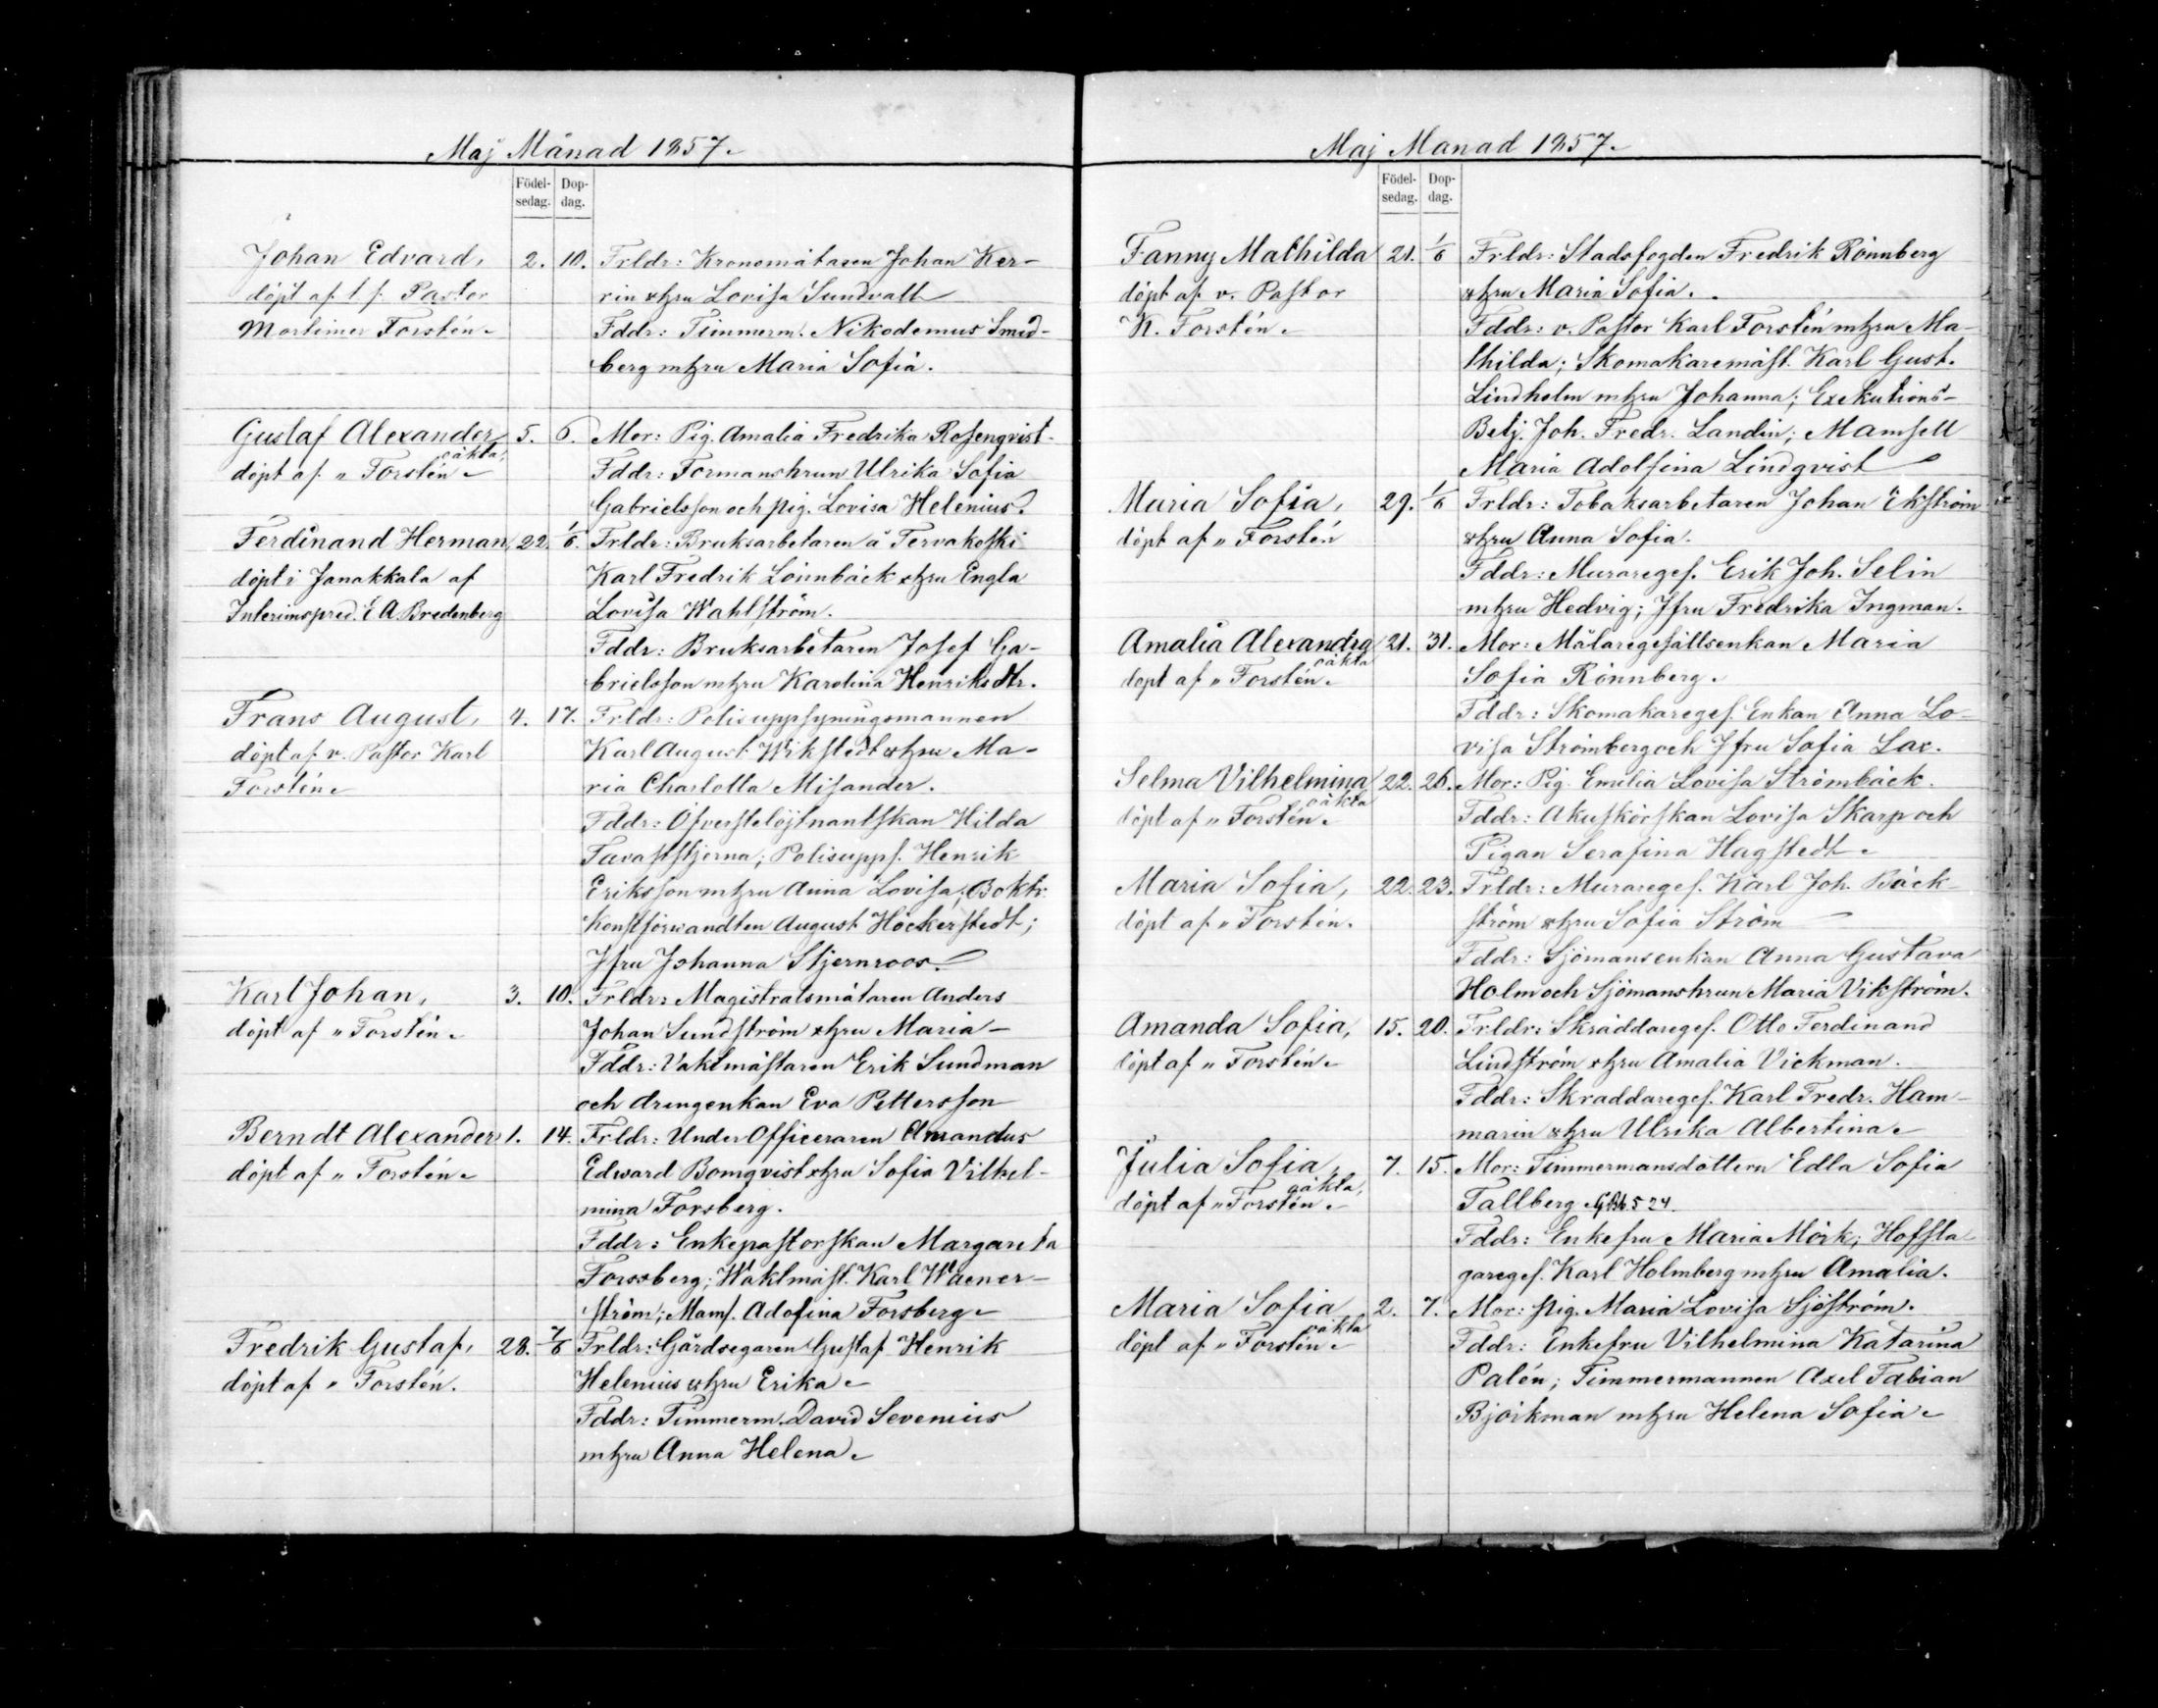 Maj Månad 1857.
Födel-
sedag.
Dop-
dag.
Johan Edvard, 2. 10. Frldr: Kronomätaren Johan Ker-
döpt af t f. Pastor rin o hru Lovisa Sundvall
Mortimer Forstén. Fddr: Timmerm. Nikodemus Smed-
berg m hru Maria Sofia.
Gustaf Alexander 5. 6. Mor: Pig. Amalia Fredrika Rosenqvist.
oäkta,
döpt af " Forstén. Fddr: Formanshrun Ulrika Sofia
Gabrielsson och pig. Lovisa Helenius.
Ferdinand Herman, 22. 1/6. Frldr: Bruksarbetaren å Tervakoski
döpt i Janakkala af Karl Fredrik Lönnbäck o hru Engla
Interimspred. E A. Bredenberg Lovisa Wahlström.
Fddr: Bruksarbetaren Josef Ga-
brielsson m hru Karolina Henriksdtr.
Frans August, 4. 17. Frldr: Polisuppsyningsmannen
döpt af v. Pastor Karl Karl August Wikstedt o hru Ma-
Forstén. ria Charlotta Misander.
Fddr: Öfverstelöjtnantskan Hilda
Tavaststjerna; Polisupps. Henrik
Eriksson m hru Anna Lovisa; Boktr.
Konstförvandten August Höckerstedt;
Jfru Johanna Stjernroos.
Karl Johan, 3. 10. Frldr: Magistratsmätaren Anders
döpt af " Forstén. Johan Sundström o hru Maria-
Fddr: Vaktmästaren Erik Sundman
och drengenkan Eva Pettersson
Berndt Alexander 1. 14. Frldr: Under Officeraren Amandus
döpt af " Forstén. Edward Bomqvist o hru Sofia Vilhel-
mina Forsberg.
Fddr: Enkepastorskan Margareta
Forssberg; Waktmäst. Karl Waener-
ström; Mams. Adofina Forsberg.
Fredrik Gustaf, 28. 7/6 Frldr: Gårdsegaren Gustaf Henrik
döpt af " Forstén. Helenius o hru Erika.
Fddr: Timmerm. David Sevenius
m hru Anna Helena.
Maj Månad 1857.
Födel-
sedag.
Dop-
dag.
Fanny Mathilda 21. 1/6 Frldr: Stadsfogden Fredrik Rönnberg
döpt af v. Pastor o hru Maria Sofia.
K. Forstén. Fddr: v. Pastor Karl Forstén m hru Ma-
thilda; Skomakaremäst. Karl Gust.
Lindholm m hru Johanna; Exekutions-
Betj. Joh. Fredr. Landin; Mamsell
Maria Adolfina Lindqvist
Maria Sofia, 29. 1/6 Frldr: Tobaksarbetaren Johan Ekström
döpt af " Forstén o hru Anna Sofia.
Fddr: Murareges. Erik Joh. Selin
m hru Hedvig; Jfru Fredrika Ingman.
Amalia Alexandra 21. 31. Mor: Målaregesällsenkan Maria
oäkta
döpt af " Forstén. Sofia Rönnberg.
Fddr: Skomakareges. Enkan Anna Lo-
visa Strömberg och Jfru Sofia Lax.
Selma Vilhelmina 22. 26. Mor: Pig. Emilia Lovisa Strömbäck.
oäkta
döpt af " Forstén. Fddr: Akuskörskan Lovisa Skarp och
Pigan Serafina Hagstedt.
Maria Sofia, 22. 23. Frldr: Murareges. Karl Joh. Bäck-
döpt af " Forstén. ström o hru Sofia Ström
Fddr: Sjömansenkan Anna Gustava
Holm och Sjömanshrun Maria Vikström.
Amanda Sofia, 15. 20. Frldr: Skräddareges. Otto Ferdinand
döpt af " Forstén. Lindström o hru Amalia Vickman.
Fddr: Skräddareges. Karl Fredr. Ham-
marin o hru Ulrika Albertina.
Julia Sofia, 7. 15. Mor: Timmermansdottern Edla Sofia
oäkta,
döpt af " Forstén. Tallberg. 524.
Fddr: Enkefru Maria Mörk; Hofsla-
gareges. Karl Holmberg m hru Amalia.
Maria Sofia 2. 7. Mor: pig. Maria Lovisa Sjöström.
oäkta
döpt af " Forstén. Fddr: Enkefru Vilhelmina Katarina
Palén; Timmermannen Axel Fabian
Björkman m hru Helena Sofia.